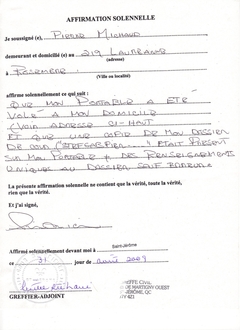 AFFIRMATION SOLENNELLE
Je soussigné (e), PIERRE MICHAUD
demeurant et domicilié (e) au 219 LAURANCE
(adresse)
à ROSEMERE
(Ville ou localité)
affirme solennellement ce qui suit :
QUE MON PORTABLE A ETE
VOLE A MON DOMICILE
(VOIR ADRESSE CI-HAUT)
ET QUE UNE COPIE DE MON DOSSIER
DE COUR ETAIT PRESENT
SUR MON PORTABLE & DES RENSEIGNEMENTS
UNIQUES AU DOSSIER
La présente affirmation solennelle ne contient que la vérité, toute la vérité,
rien que la vérité.
Et j'ai signé,
Affirmé solennellement devant moi à Saint-Jérôme
ce 31 jour de août 2009
GREFFIER-ADJOINT
DE MARTIGNY OUEST